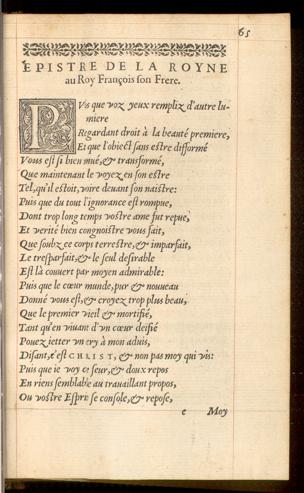 65
EPISTRE DE LA ROYNE
au Roy François son Frere.
PVis que voz yeux rempliz d'autre lu-
miere
Regardant droit à la beauté premiere,
Et que l'obiect sans estre difformé
Vous est si bien mué, & transformé,
Que maintenant le voyez en son estre
Tel, qu'il estoit, voire deuant son naistre:
Puis que du tout l'ignorance est rompue,
Dont trop long temps vostre ame fut repue,
Et verité bien congnoistre vous fait,
Que soubz ce corps terrestre, & imparfait,
Le tresparfait, & le seul desirable
Est là couuert par moyen admirable:
Puis que le cœur munde, pur & nouueau
Donné vous est, & croyez trop plus beau,
Que le premier vieil & mortifié,
Tant qu'en viuant d'vn cœur deifié
Pouez ietter vn cry à mon aduis,
Disant, c'est CHRIST, & non pas moy qui vis:
Puis que ie voy ce seur, & doux repos
En riens semblable au trauaillant propos,
Ou vostre Esprit se console, & repose,
e Moy